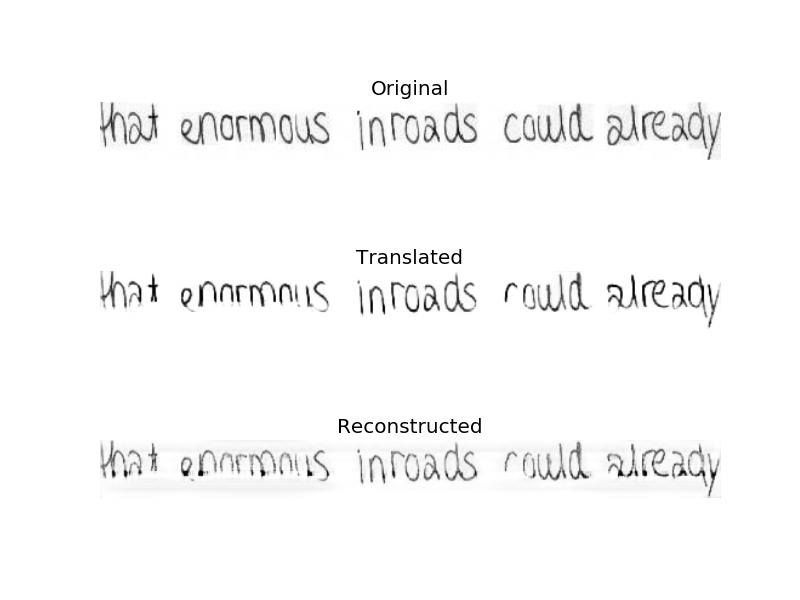 Original
that enormous inroads could already
Translated
that enormous inroads could already
Reconstructed
that enormous inroads could already